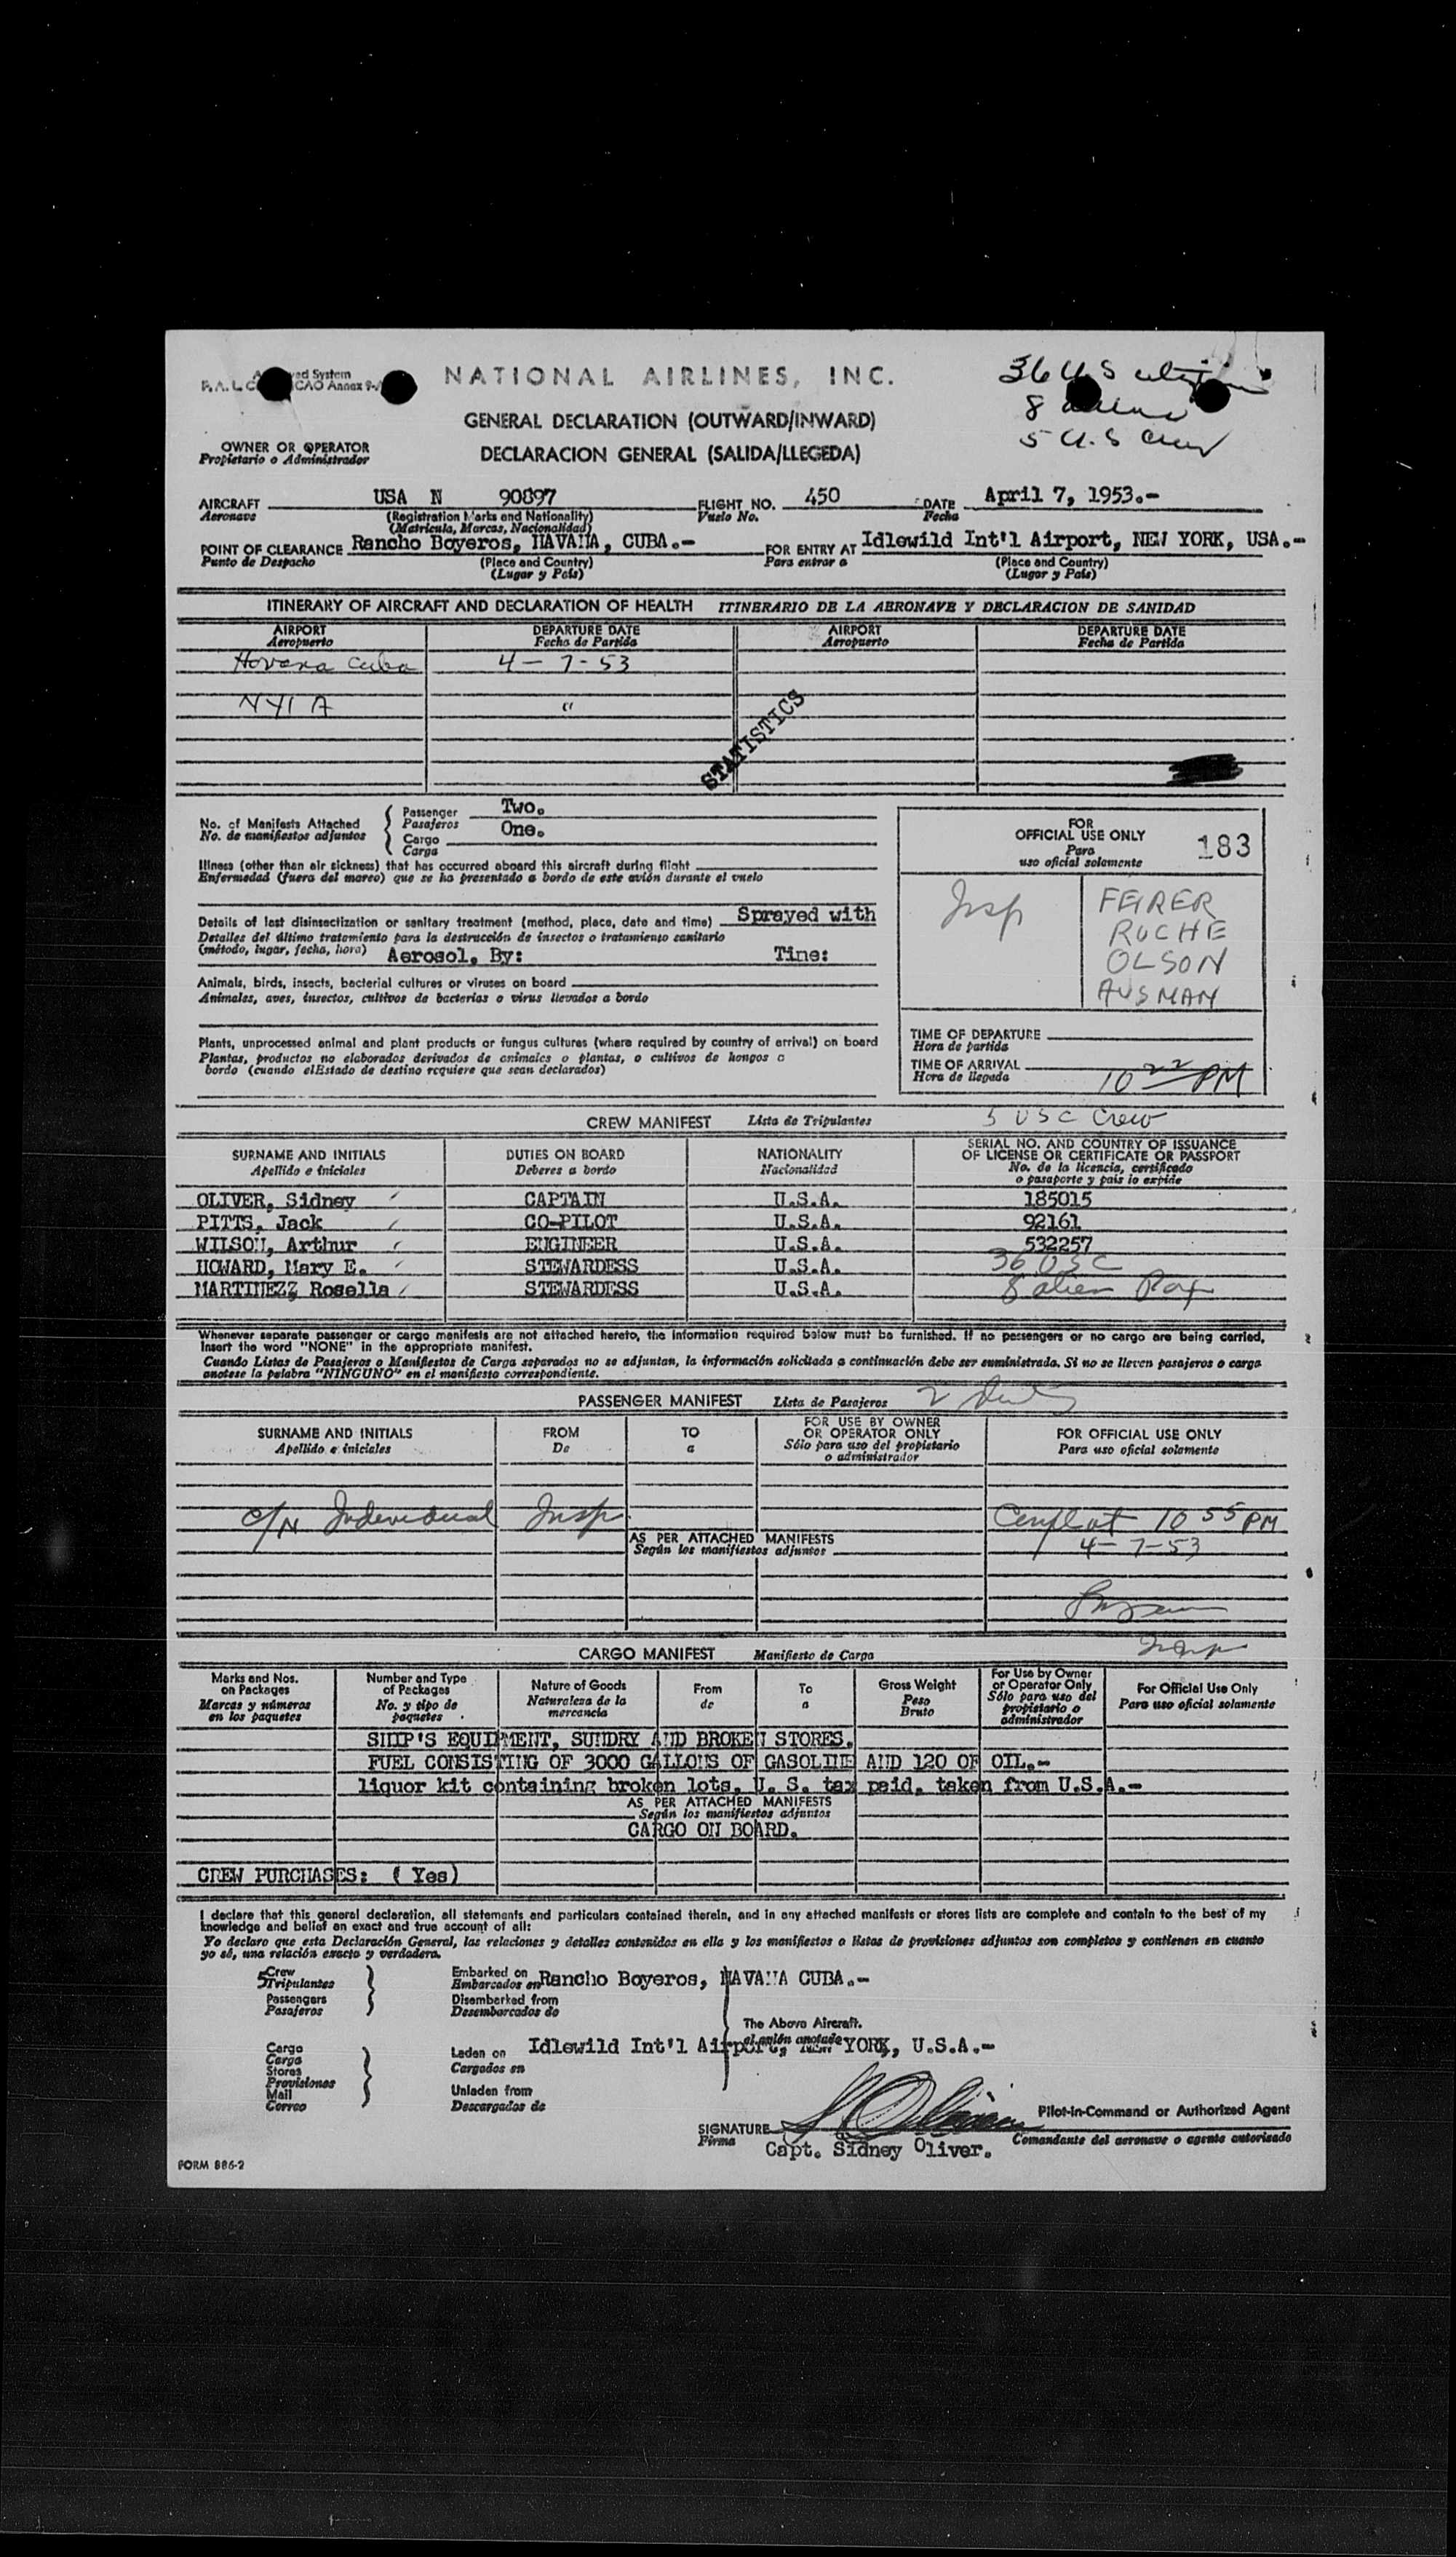 NATIONAL AIRLINES, INC.
36 U S
8
5 U.S Crew
GENERAL DECLARATION (OUTWARD/INWARD)
DECLARACION GENERAL (SALIDA/LLEGEDA)
OWNER OR OPERATOR
Propietario o Administrador
AIRCRAFT USA N 90897 FLIGHT NO. 450 DATE April 7, 1953.-
Aeronave (Registration Marks and Nationality) Vuelo No. Fecha
(Matricula, Marcas, Nacionalidad)
POINT OF CLEARANCE Rancho Boyeros, HAVANA, CUBA.- FOR ENTRY AT Idlewild Int'l Airport, NEW YORK, USA.-
Punto de Despacho (Place and Country) Para entrar a (Place and Country)
(Lugar y País) (Lugar y País)
ITINERARY OF AIRCRAFT AND DECLARATION OF HEALTH ITINERARIO DE LA AERONAVE Y DECLARACION DE SANIDAD
AIRPORT DEPARTURE DATE AIRPORT DEPARTURE DATE
Aeropuerto Fecha de Partida Aeropuerto Fecha de Partida
Havana Cuba 4-7-53
NYIA "
STATISTICS
No. of Manifests Attached Passenger Two.
No. de manifiestos adjuntos Pasajeros
Cargo One.
Carga
Illness (other than air sickness) that has occurred aboard this aircraft during flight
Enfermedad (fuera del mareo) que se ha presentado a bordo de este avión durante el vuelo
Details of last disinsectization or sanitary treatment (method, place, date and time) Sprayed with
Detalles del último tratamiento para la destrucción de insectos o tratamiento sanitario
(método, lugar, fecha, hora) Aerosol, By: Time:
Animals, birds, insects, bacterial cultures or viruses on board
Animales, aves, insectos, cultivos de bacterias o virus llevados a bordo
Plants, unprocessed animal and plant products or fungus cultures (where required by country of arrival) on board
Plantas, productos no elaborados derivados de animales o plantas, o cultivos de hongos a
bordo (cuando elEstado de destino requiere que sean declarados)
FOR
OFFICIAL USE ONLY 183
Para
uso oficial solamente
Insp FEIRER
ROCHE
OLSON
AUSMAN
TIME OF DEPARTURE
Hora de partida
TIME OF ARRIVAL 10 22 PM
Hora de llegada
5 USC Crew
CREW MANIFEST Lista de Tripulantes
SURNAME AND INITIALS DUTIES ON BOARD NATIONALITY SERIAL NO. AND COUNTRY OF ISSUANCE
OF LICENSE OR CERTIFICATE OR PASSPORT
Apellido e iniciales Deberes a bordo Nacionalidad No. de la licencia, certificado
o pasaporte y país lo expide
OLIVER, Sidney CAPTAIN U.S.A. 185015
PITTS, Jack CO-PILOT U.S.A. 92161
WILSON, Arthur ENGINEER U.S.A. 532257
HOWARD, Mary E. STEWARDESS U.S.A. 36 USC
MARTINEZZ Rosella STEWARDESS U.S.A. 8 alien Pax
Whenever separate passenger or cargo manifests are not attached hereto, the information required below must be furnished. If no passengers or no cargo are being carried,
Insert the word "NONE" in the appropriate manifest.
Cuando Listas de Pasajeros o Manifiestos de Carga separados no se adjuntan, la información solicitada a continuación debe ser suministrada. Si no se lleven pasajeros o carga
anotese la palabra "NINGUNO" en el manifiesto correspondiente.
PASSENGER MANIFEST Lista de Pasajeros 2
SURNAME AND INITIALS FROM TO FOR USE BY OWNER
OR OPERATOR ONLY FOR OFFICIAL USE ONLY
Apellido e iniciales De a Sólo para uso del propietario
o administrador Para uso oficial solamente
c/N Individual Insp 10 55 PM
AS PER ATTACHED MANIFESTS
Según los manifiestos adjuntos
4-7-53
Insp
CARGO MANIFEST Manifiesto de Carga
Marks and Nos.
on Packages
Marcas y números
en los paquetes
Number and Type
of Packages
No. y tipo de
paquetes
Nature of Goods
Naturaleza de la
mercancía
From
de
To
a
Gross Weight
Peso
Bruto
For Use by Owner
or Operator Only
Sólo para uso del
propietario o
administrador
For Official Use Only
Para uso oficial solamente
SHIP'S EQUIPMENT, SUNDRY AND BROKEN STORES.
FUEL CONSISTING OF 3000 GALLONS OF GASOLINE AND 120 OF OIL.-
liquor kit containing broken lots, U. S. tax paid, taken from U.S.A.-
AS PER ATTACHED MANIFESTS
Según los manifiestos adjuntos
CARGO ON BOARD.
CREW PURCHASES: ( Yes)
I declare that this general declaration, all statements and particulars contained therein, and in any attached manifests or stores lists are complete and contain to the best of my
knowledge and belief an exact and true account of all:
Yo declaro que esta Declaración General, las relaciones y detalles contenidos en ella y los manifiestos o listas de provisiones adjuntos son completos y contienen en cuanto
yo sé, una relación exacta y verdadera.
5 Crew
Tripulantes
Passengers
Pasajeros
Embarked on
Embarcados en Rancho Boyeros, HAVANA CUBA.-
Disembarked from
Desembarcados de
The Above Aircraft.
el avión anotado
Cargo
Carga
Stores
Provisiones
Mail
Correo
Laden on Idlewild Int'l Airport, NEW YORK, U.S.A.-
Cargados en
Unladen from
Descargados de
SIGNATURE S Oliver Pilot-in-Command or Authorized Agent
Firma Capt. Sidney Oliver. Comandante del aeronave o agente autorizado
FORM 886-2